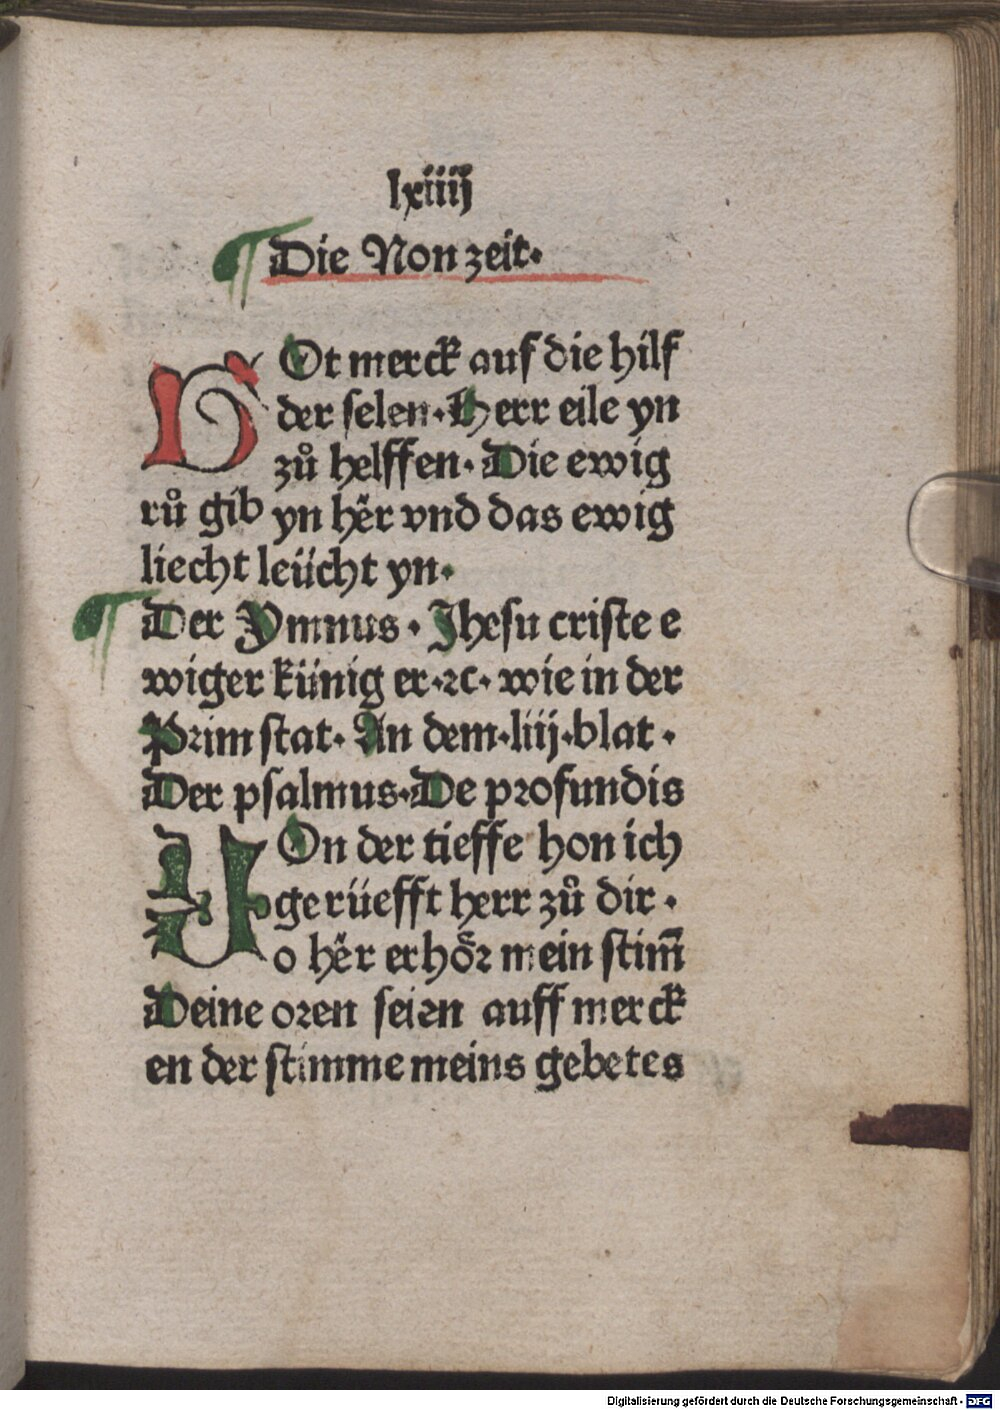 lxiiij
¶ Die Non zeit.
GOt merck auf die hilf
der selen. Herr eile yn
zuͦ helffen. Die ewig
ruͦ gib yn hër vnd das ewig
liecht leücht yn.
¶ Der Ymnus. Jhesu criste e
wiger künig er.ꝛc. wie in der
Prim stat. An dem.liiij.blat.
Der psalmus. De profundis
VOn der tieffe hon ich
gerüefft herr zuͦ dir.
o hër erhöꝛ mein stim̄
Deine oꝛen seien auff merck
en der stimme meins gebetes
Digitalisierung gefördert durch die Deutsche Forschungsgemeinschaft - DFG